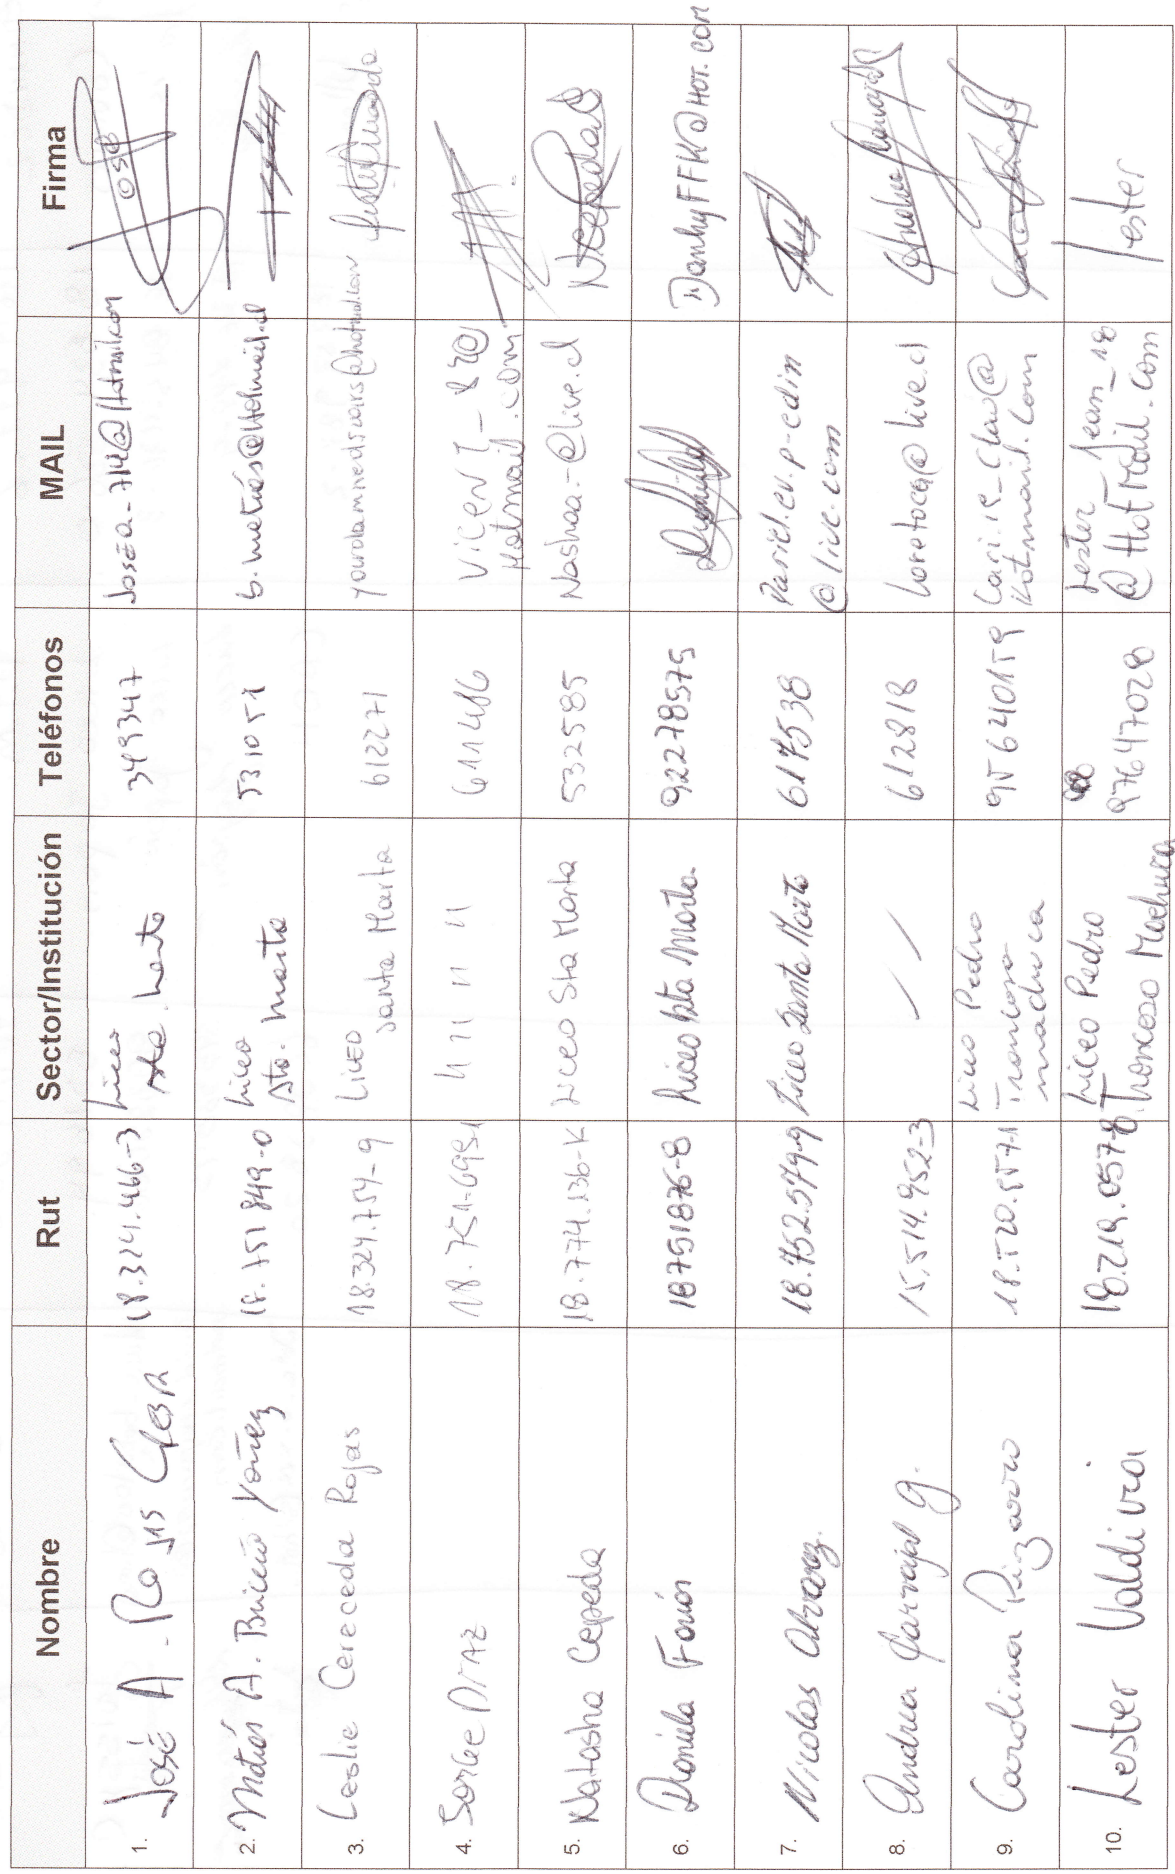 Nombre Rut Sector/Institución Teléfonos MAIL Firma
1. José A. Rojas 18.324.466-3 Liceo Sta. Marta 349347 José
2. Matías A. Briceño Yáñez 18.751849-0 Liceo Sta. Marta 531051
3. Leslie Cereceda Rojas 18.324.754-9 LiCEO Santa Marta 612271
4. Jorge DíAz 18.751.699-1 11 11 11 11 611486 VICENT_820@
Hotmail.com
5. Natasha Cepeda 18.774.136-K Liceo Sta Marta 532585 Nashaa-@live.cl NCepeda
6. Daniela Farías 18751876-8 Liceo Sta Marta. 92278575 DanhyFFK@HOT.com
7. Nicolas Alvarez. 18.752.579-9 Liceo Santa Marta 617538 Daniel.eu.p-edim
@live.com
8. Andrea Carvajal G. 15.514.952-3 // 612818 loretocg@live.cl
9. Carolina Pizarro 18.520.557-1 Liceo Pedro
Troncoso
machuca 95640159 Cari.19_Clau@
Hotmail.com
10. Lester Valdivia 18.219.057-8 Liceo Pedro
Troncoso Machuca 97647028 Lester_jean_18
@HotMail.com Lester